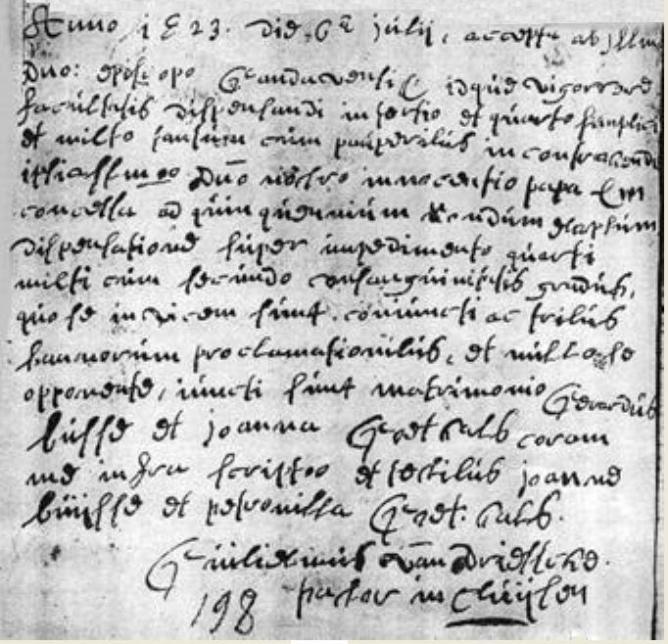 Anno 1623. die 6ª julij, accepta ab jllmo
Dno: episcopo Gandavensi, idque vigore
facultatis dispensandi in tertio et quarto simplici
et mixto tantum cum pauperibus in contrahendis
Dno nostro innocentio papa
concessa ad quinquennium nondum elapsum
dispensatione super impedimento quarti
mixti cum secundo consanguinitatis gradus,
quo se invicem sunt coniuncti ac tribus
bannorum proclamationibus, et nullo se
opponente, iuncti sunt matrimonio Gerardus
buisse et joanna Geethals coram
me infra scripto et testibus joanne
buijsse et petronilla Geethals.
Guilielmus van Driessche.
198 pastor in Cluijsen